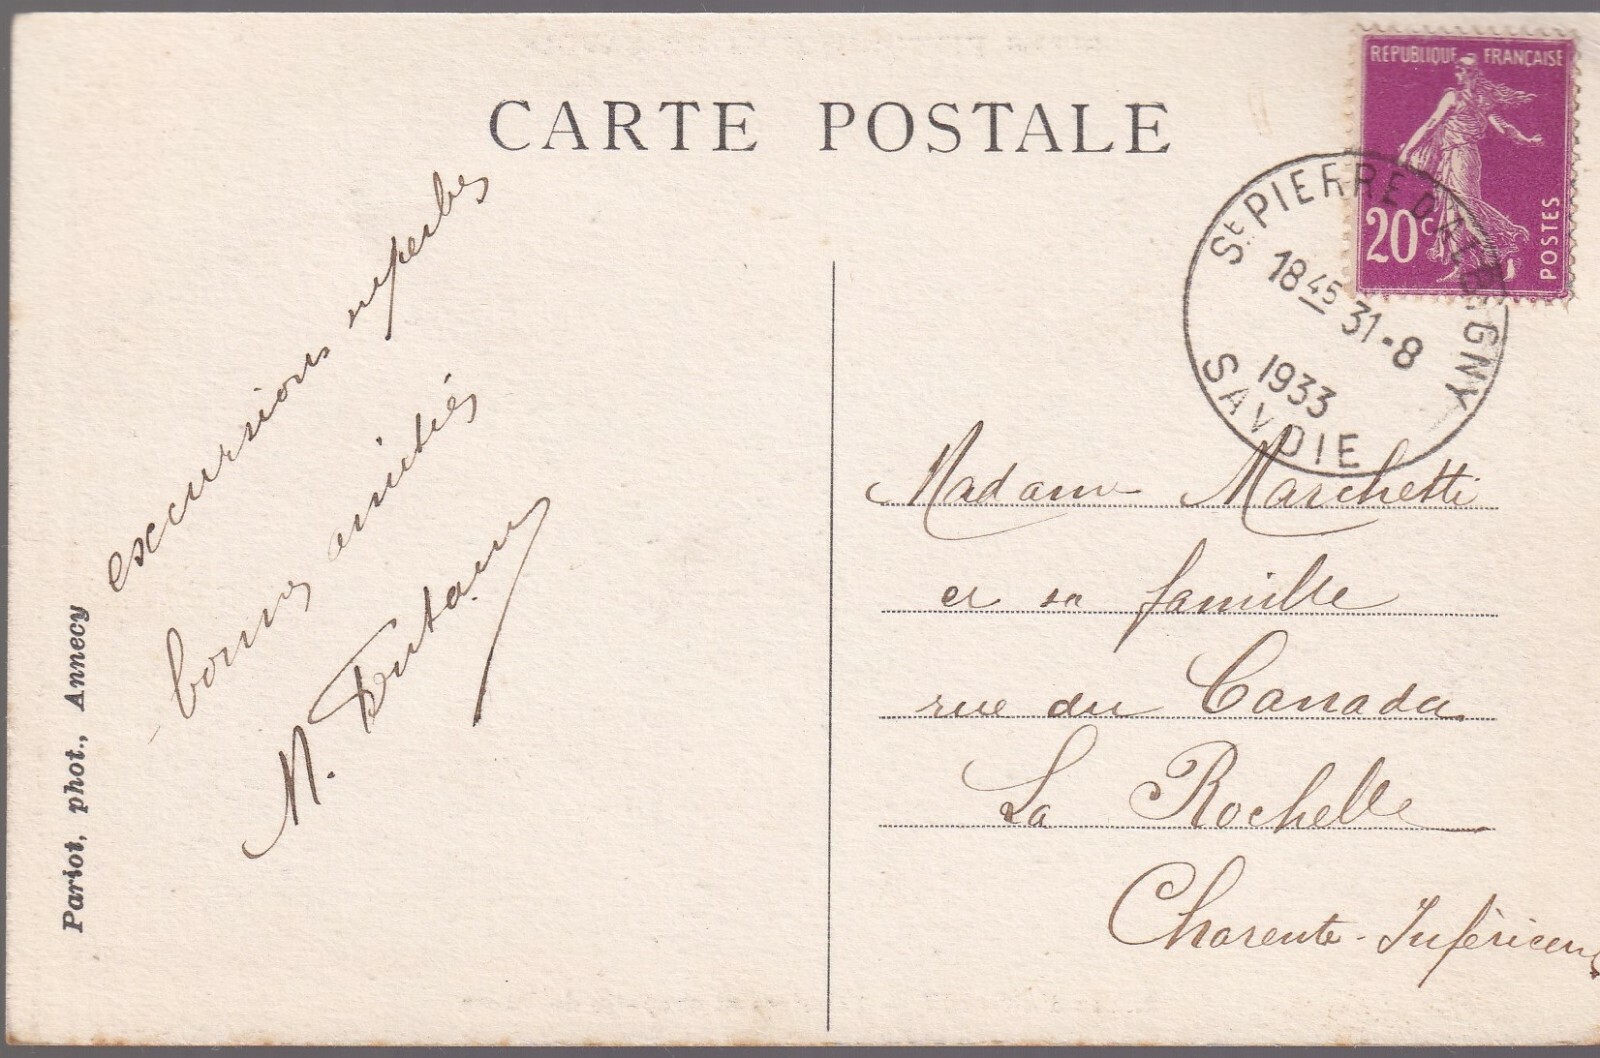 CARTE POSTALE
REPUBLIQUE FRANÇAISE
20c
POSTES
St PIERRE D'ALBIGNY
18 45 31-8
1933
SAVOIE
excursions superbes
bonnes amitiés
M.
Madame Marchetti
et sa famille
rue du Canada
La Rochelle
Charente-Inférieure
Pariot, phot., Annecy